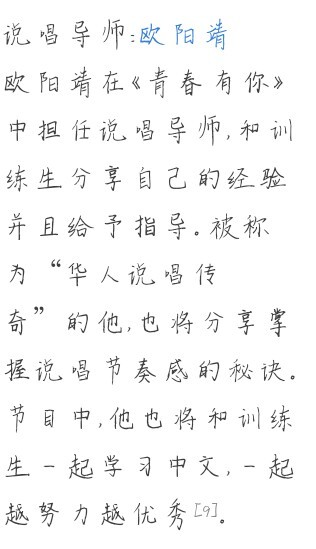 说唱导师:欧阳靖
欧阳靖在《青春有你》
中担任说唱导师,和训
练生分享自己的经验
并且给予指导。被称
为“华人说唱传
奇”的他,也将分享掌
握说唱节奏感的秘诀。
节目中,他也将和训练
生一起学习中文,一起
越努力越优秀[9]。